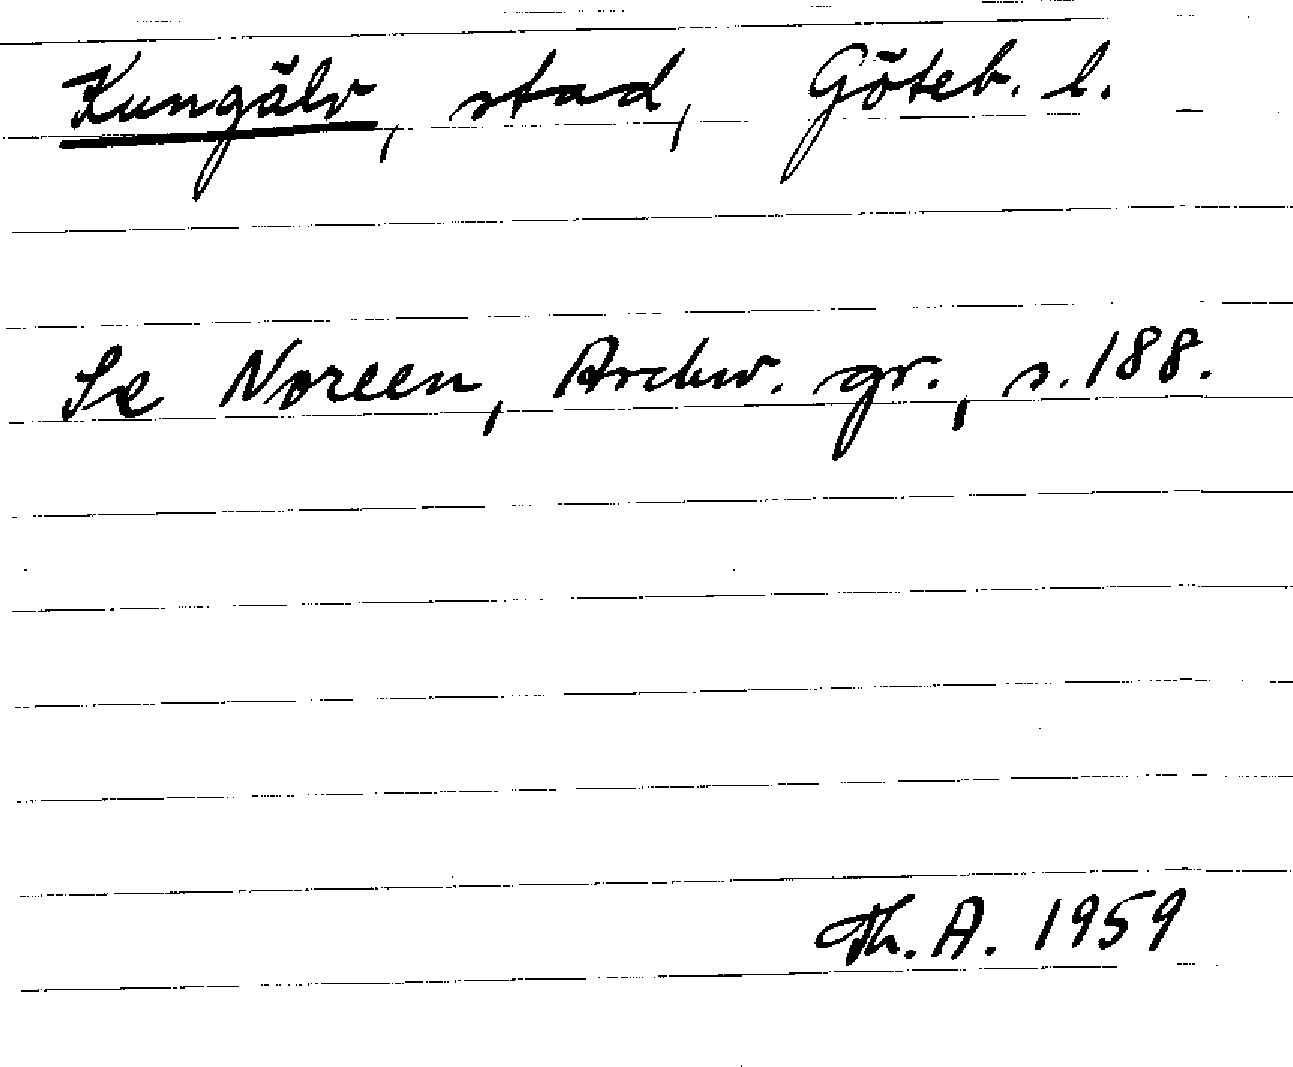 Kungälv, stad, Göteb. l.
Se Noreen, Archiv. gr., s. 188.
Th. A. 1959